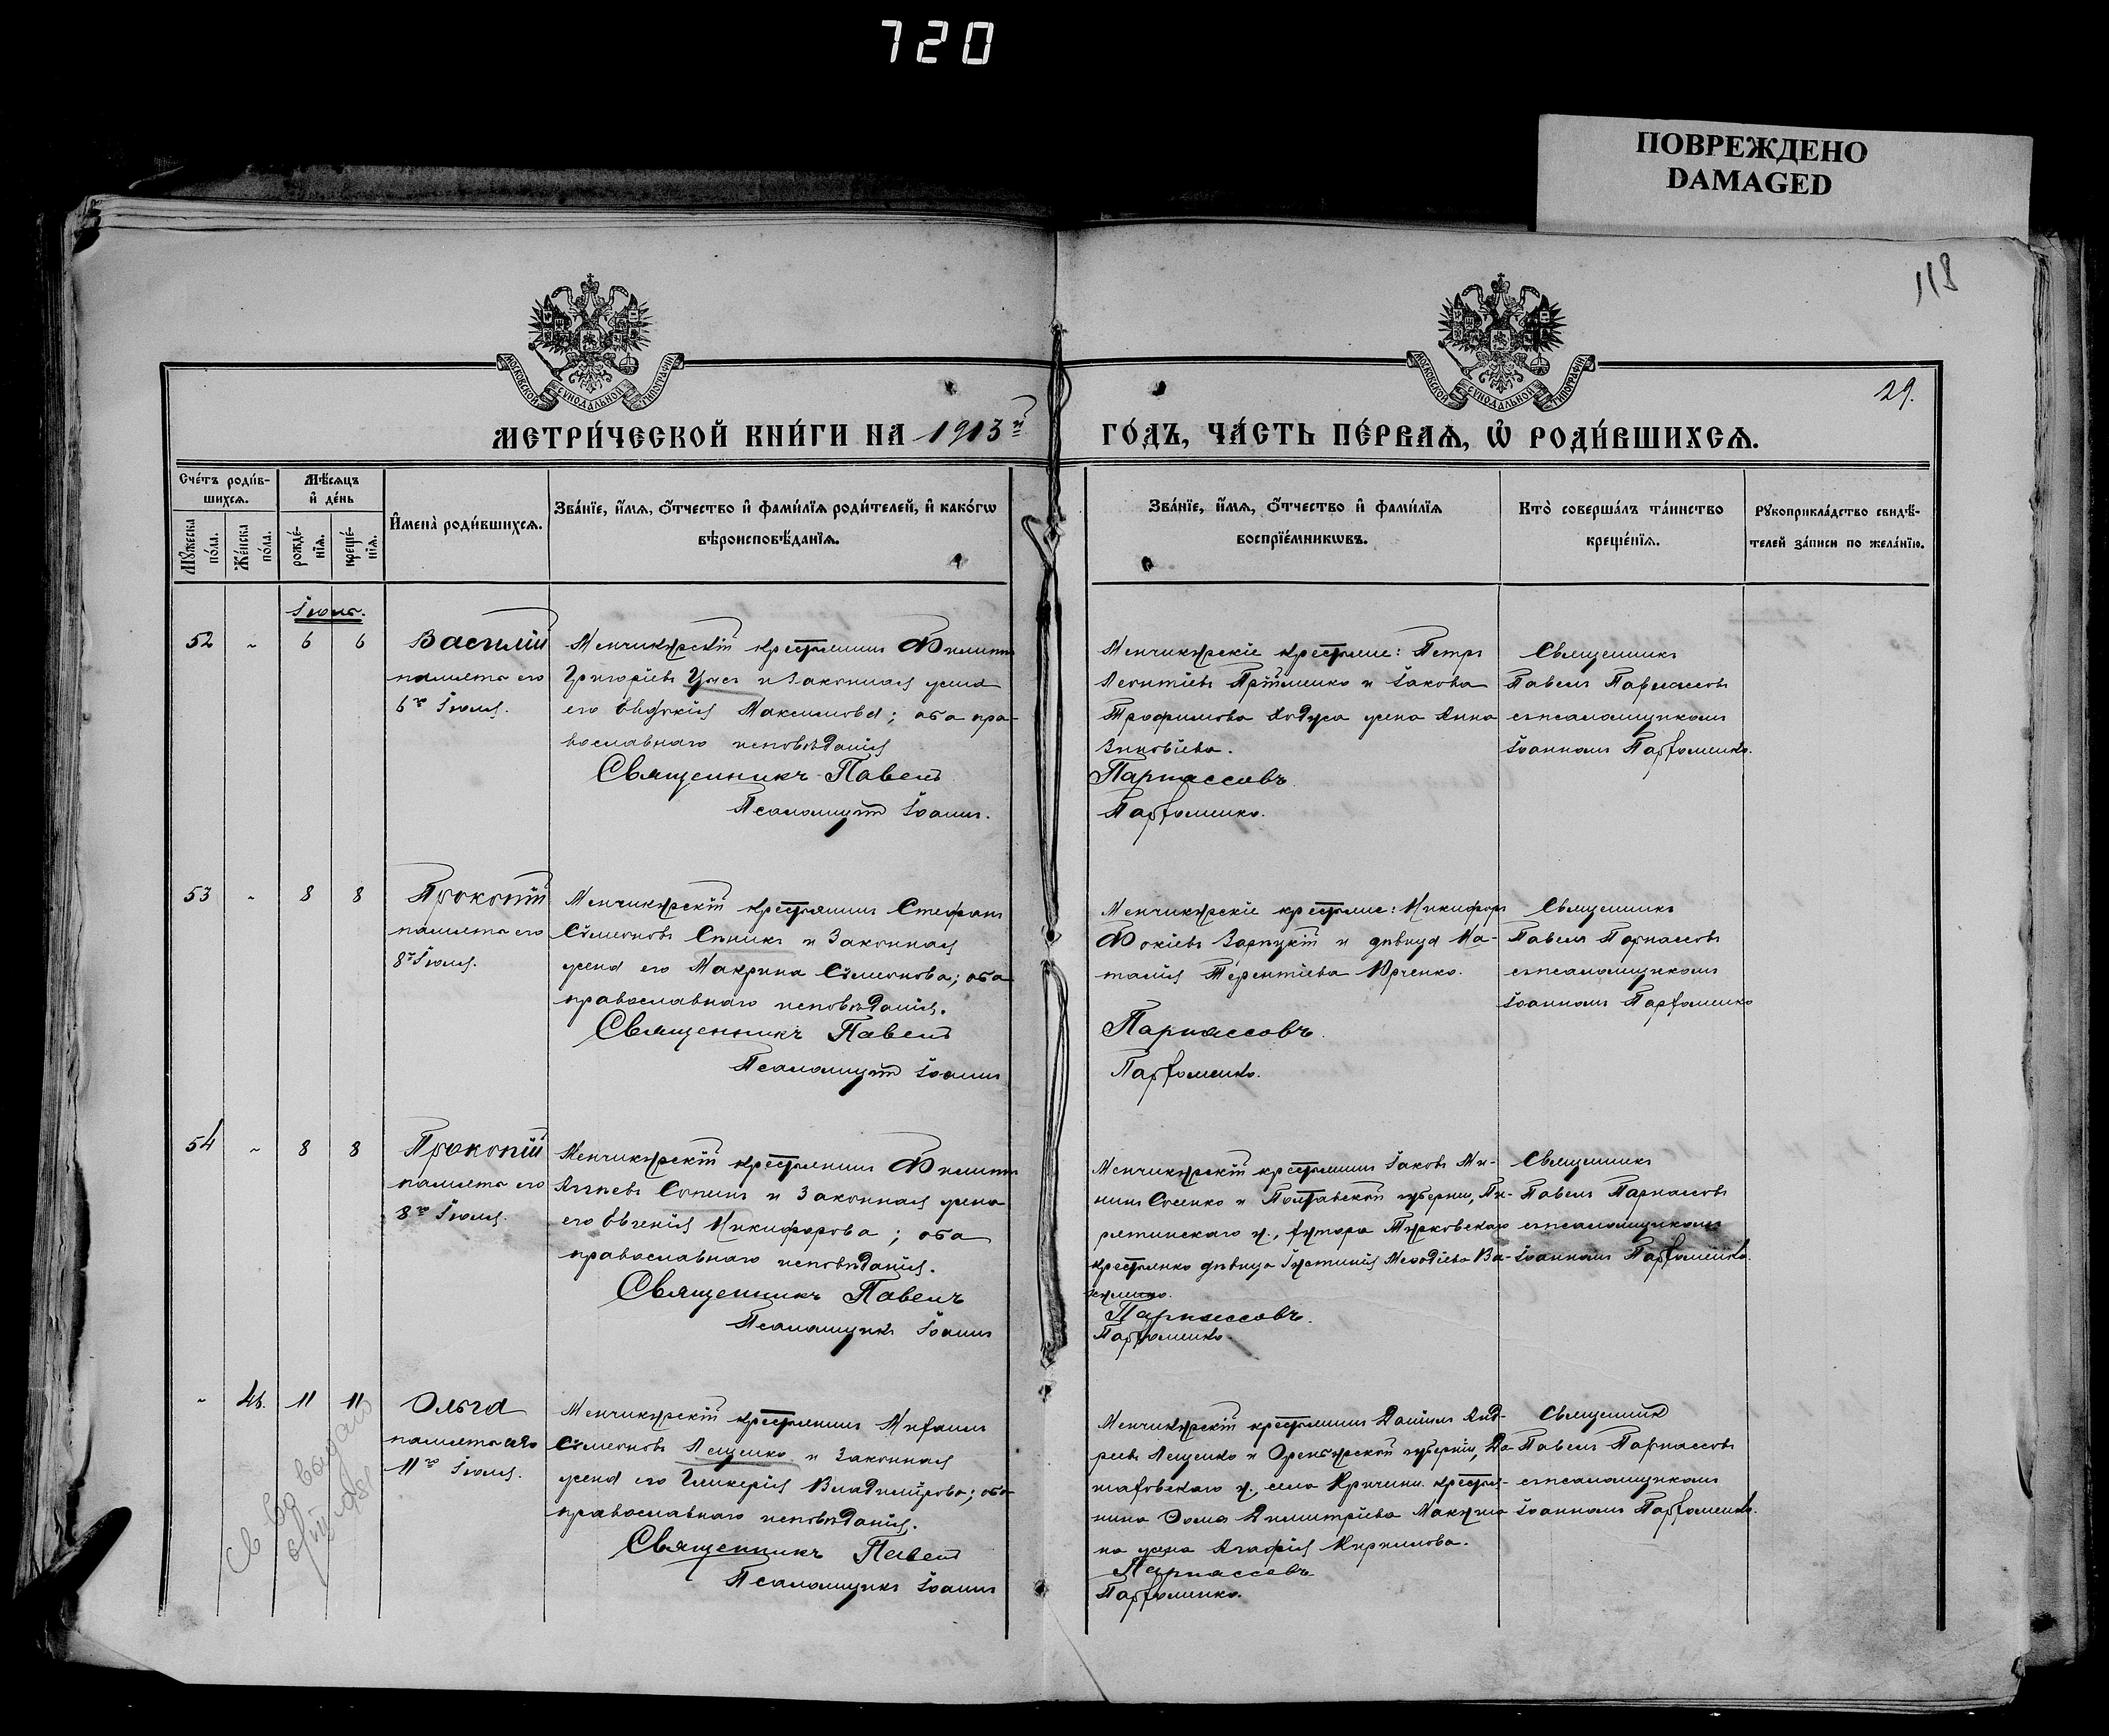 720
ПОВРЕЖДЕНО
DAMAGED
118
МОСКОВСКОЙ СѴНОДАЛЬНОЙ ТИПОГРАФІИ
МОСКОВСКОЙ СѴНОДАЛЬНОЙ ТИПОГРАФІИ
29.
МЕТРИ́ЧЕСКОЙ КНИ́ГИ НА 1913й ГО́ДЪ, ЧА́СТЬ ПЕ́РВАЯ, Ѡ҆ РОДИ́ВШИХСЯ.
Сче́тъ роди́в-
шихсѧ.
Мꙋжеска по́ла.
Же́нска по́ла.
Мѣ́сѧцъ
и҆ де́нь
рожде́-
нїѧ.
креще́-
нїѧ.
И҆мена̀ роди́вшихсѧ.
Зва́нїе, и҆́мѧ, ѻ҆́тчество и҆ фами́лїѧ роди́телей, и҆ како́гѡ
вѣроисповѣ́данїѧ.
Зва́нїе, и҆́мѧ, ѻ҆́тчество и҆ фами́лїѧ
воспрїе́мникѡвъ.
Кто̀ соверша́лъ та́инство
креще́нїѧ.
Рꙋкоприкла́дство свидѣ́-
телей за́писи по жела́нїю.
Іюль.
52 " 6 6 Василій
память его
6го Іюля.
Менчикурскій крестьянинъ Филиппъ
Григоріевъ и законная жена
его Евдокія Максимова; оба пра-
вославнаго исповѣданія
Священникъ Павелъ
Псаломщикъ Іоаннъ.
Менчикурскіе крестьяне: Петръ
Леонтіевъ и Іакова
Трофимова Ходуса жена Анна
Зиновіева.
Парнассовъ.
Парфоменко.
Священникъ
Павелъ Парнассовъ
съ псаломщикомъ
Іоанномъ Парфоменко.
53 " 8 8 Прокопій
память его
8го Іюля.
Менчикурскій крестьянинъ Стефанъ
Сѵмеоновъ и законная
жена его Макрина Сѵмеонова; оба
православнаго исповѣданія.
Священникъ Павелъ
Псаломщикъ Іоаннъ
Менчикурскіе крестьяне: Никифоръ
Фокіевъ Зарицкій и дѣвица На-
талія Терентіева Юрченко.
Парнассовъ.
Парфоменко.
Священникъ
Павелъ Парнассовъ
съ псаломщикомъ
Іоанномъ Парфоменко
54 " 8 8 Прокопій
память его
8го Іюля.
Менчикурскій крестьянинъ Филиппъ
и законная жена
его Евгенія Никифорова; оба
православнаго исповѣданія.
Священникъ Павелъ
Псаломщикъ Іоаннъ
Менчикурскій крестьянинъ Іаковъ Ми-
нинъ и Полтавской губерніи, Пи-
рятинскаго у., хутора Турковскаго
крестьянка дѣвица Іустинія Меѳодіева Ва-
Парнассовъ.
Парфоменко
Священникъ
Павелъ Парнассовъ
съ псаломщикомъ
Іоанномъ Парфоменко.
" 46. 11 11 Ольга
память ея
11го Іюля.
Менчикурскій крестьянинъ Михаилъ
Сѵмеоновъ Лещенко и законная
жена его Гликерія Владимірова; оба
православнаго исповѣданія.
Священникъ Павелъ
Псаломщикъ Іоаннъ
Менчикурскій крестьянинъ Даніилъ Анд-
реевъ Лещенко и Оренбурской губерніи,
у., села крестья-
нина Ѳома Димитріева
на жена Агафія Кирилова.
Парнассовъ
Парфоменко.
Священникъ
Павелъ Парнассовъ
съ псаломщикомъ
Іоанномъ Парфоменко.